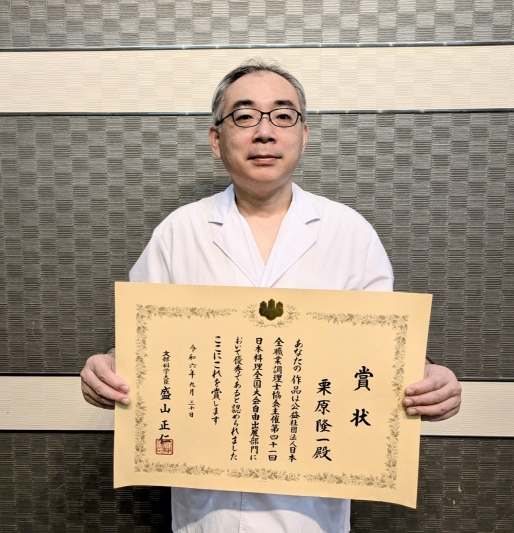 賞状
栗原隆一殿
あなたの作品は公益社団法人日本
全職業調理士協会主催第四十一回
日本料理全国大会自由出展部門に
おいて優秀であると認められました
ここにこれを賞します
令和六年九月三十日
文部科学大臣 盛山正仁